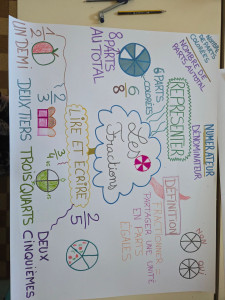 Les
Fractions
REPRÉSENTER
NOMBRE DE PARTS COLORIÉES
NOMBRE DE PARTS AU TOTAL
NUMÉRATEUR
DÉNOMINATEUR
6 PARTS COLORIÉES
8 PARTS AU TOTAL
6
8
DÉFINITION
FRACTIONNER
PARTAGER UNE UNITÉ
EN PARTS
ÉGALES
OUI
NON
LIRE ET ÉCRIRE
1
2
UN DEMI
2
3
DEUX TIERS
3
4
TROIS QUARTS
2
5
DEUX
CINQUIÈMES